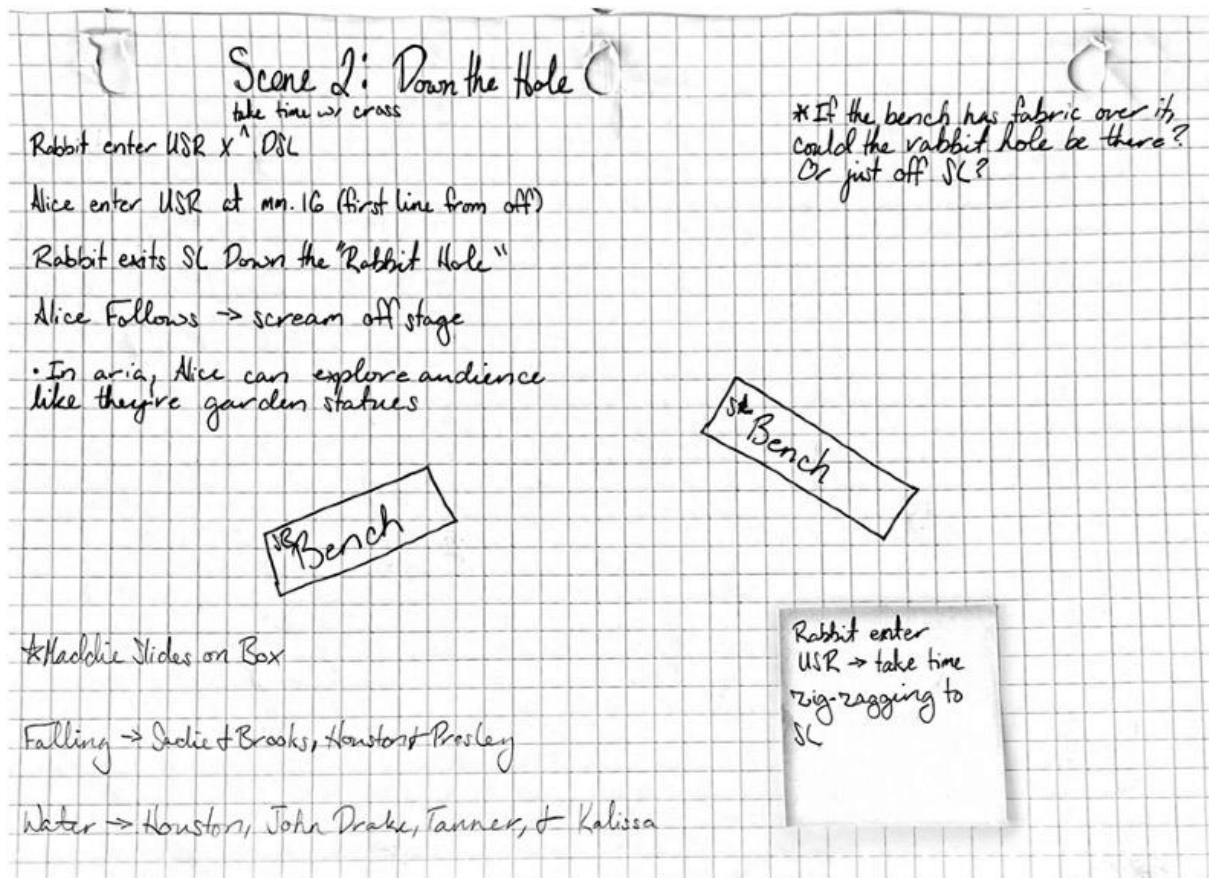 Scene 2: Down the Hole
take time w/ cross
Rabbit enter USR X ^ DSL
Alice enter USR at mm. 16 (first line from off)
Rabbit exits SL Down the "Rabbit Hole"
Alice Follows → scream off stage
• In aria, Alice can explore audience
like they're garden statues
*If the bench has fabric over it,
could the rabbit hole be there?
Or just off SL?
SL Bench
SR Bench
*Maddie Slides on Box
Falling → Sadie & Brooks, Houston & Presley
Water → Houston, John Drake, Tanner, & Kalissa
Rabbit enter
USR → take time
zig-zagging to
SL